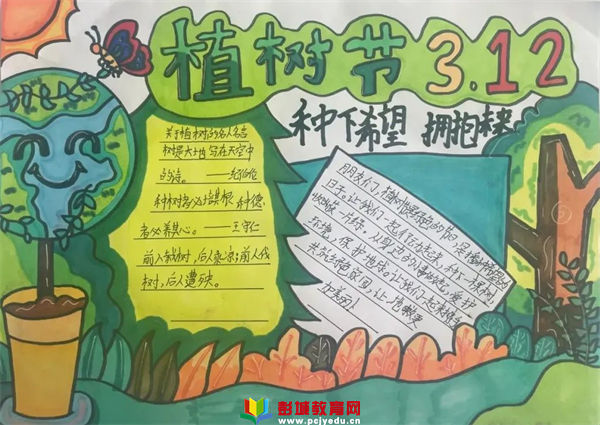 植树节3.12
种下希望 拥抱未来
关于植树的名人名言
树是大地写在天空中
的诗。——纪伯伦
种树者必培其根,种德
者必养其心。——王守仁
前人栽树,后人乘凉;前人伐
树,后人遭殃。
朋友们,植树节是
日子。让我们一起行动起来,种下一棵树,
收获一片绿。从身边的小事做起,爱护
环境,保护地球。让我们一起来携手
共筑绿色家园,让
加美好!
彭城教育网
www.pcjyedu.cn